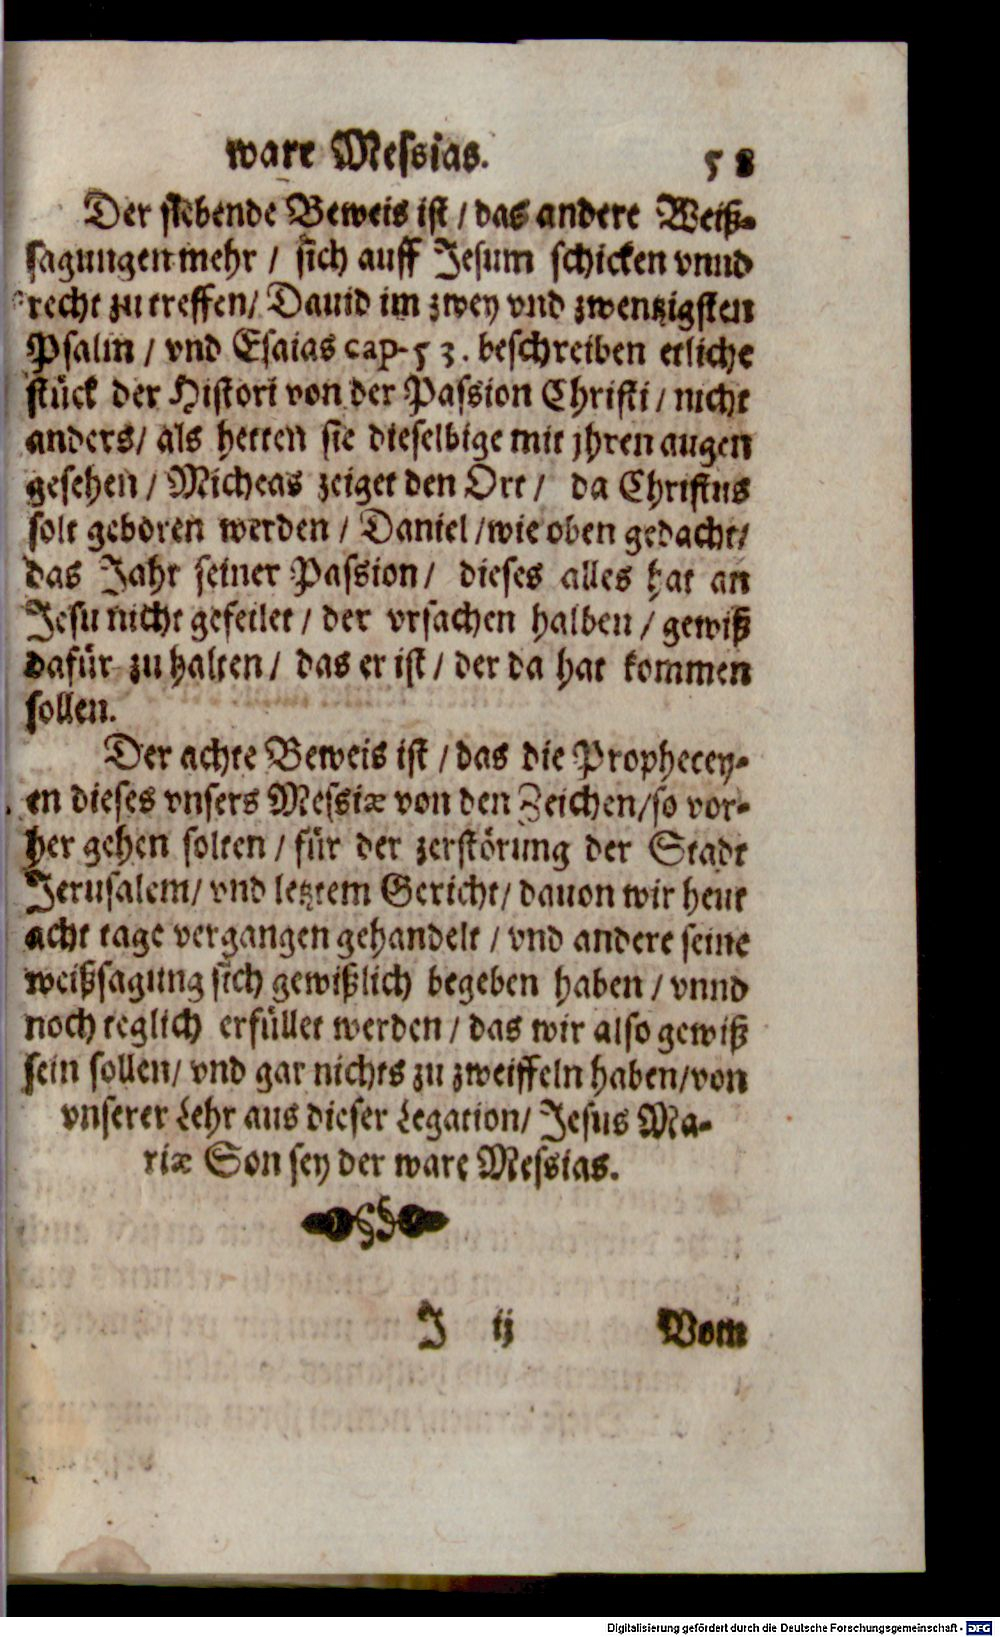 ware Messias. 58
Der siebende Beweis ist / das andere Weiß-
sagungen mehr / sich auff Jesum schicken vnnd
recht zu treffen / Dauid im zwey vnd zwentzigsten
Psalm / vnd Esaias cap. 53. beschreiben etliche
stück der Histori von der Passion Christi / nicht
anders / als hetten sie dieselbige mit jhren augen
gesehen / Micheas zeiget den Ort / da Christus
solt geboren werden / Daniel / wie oben gedacht /
das Jahr seiner Passion / dieses alles hat an
Jesu nicht gefeilet / der vrsachen halben / gewiß
dafür zu halten / das er ist / der da hat kommen
sollen.
Der achte Beweis ist / das die Prophecey-
en dieses vnsers Messiæ von den Zeichen / so vor-
her gehen solten / für der zerstörung der Stadt
Jerusalem / vnd letztem Gericht / dauon wir heut
acht tage vergangen gehandelt / vnd andere seine
weißsagung sich gewißlich begeben haben / vnnd
noch teglich erfüllet werden / das wir also gewiß
sein sollen / vnd gar nichts zu zweiffeln haben / von
vnserer Lehr aus dieser Legation / Jesus Ma-
riæ Son sey der ware Messias.
J ij Vom
Digitalisierung gefördert durch die Deutsche Forschungsgemeinschaft - DFG